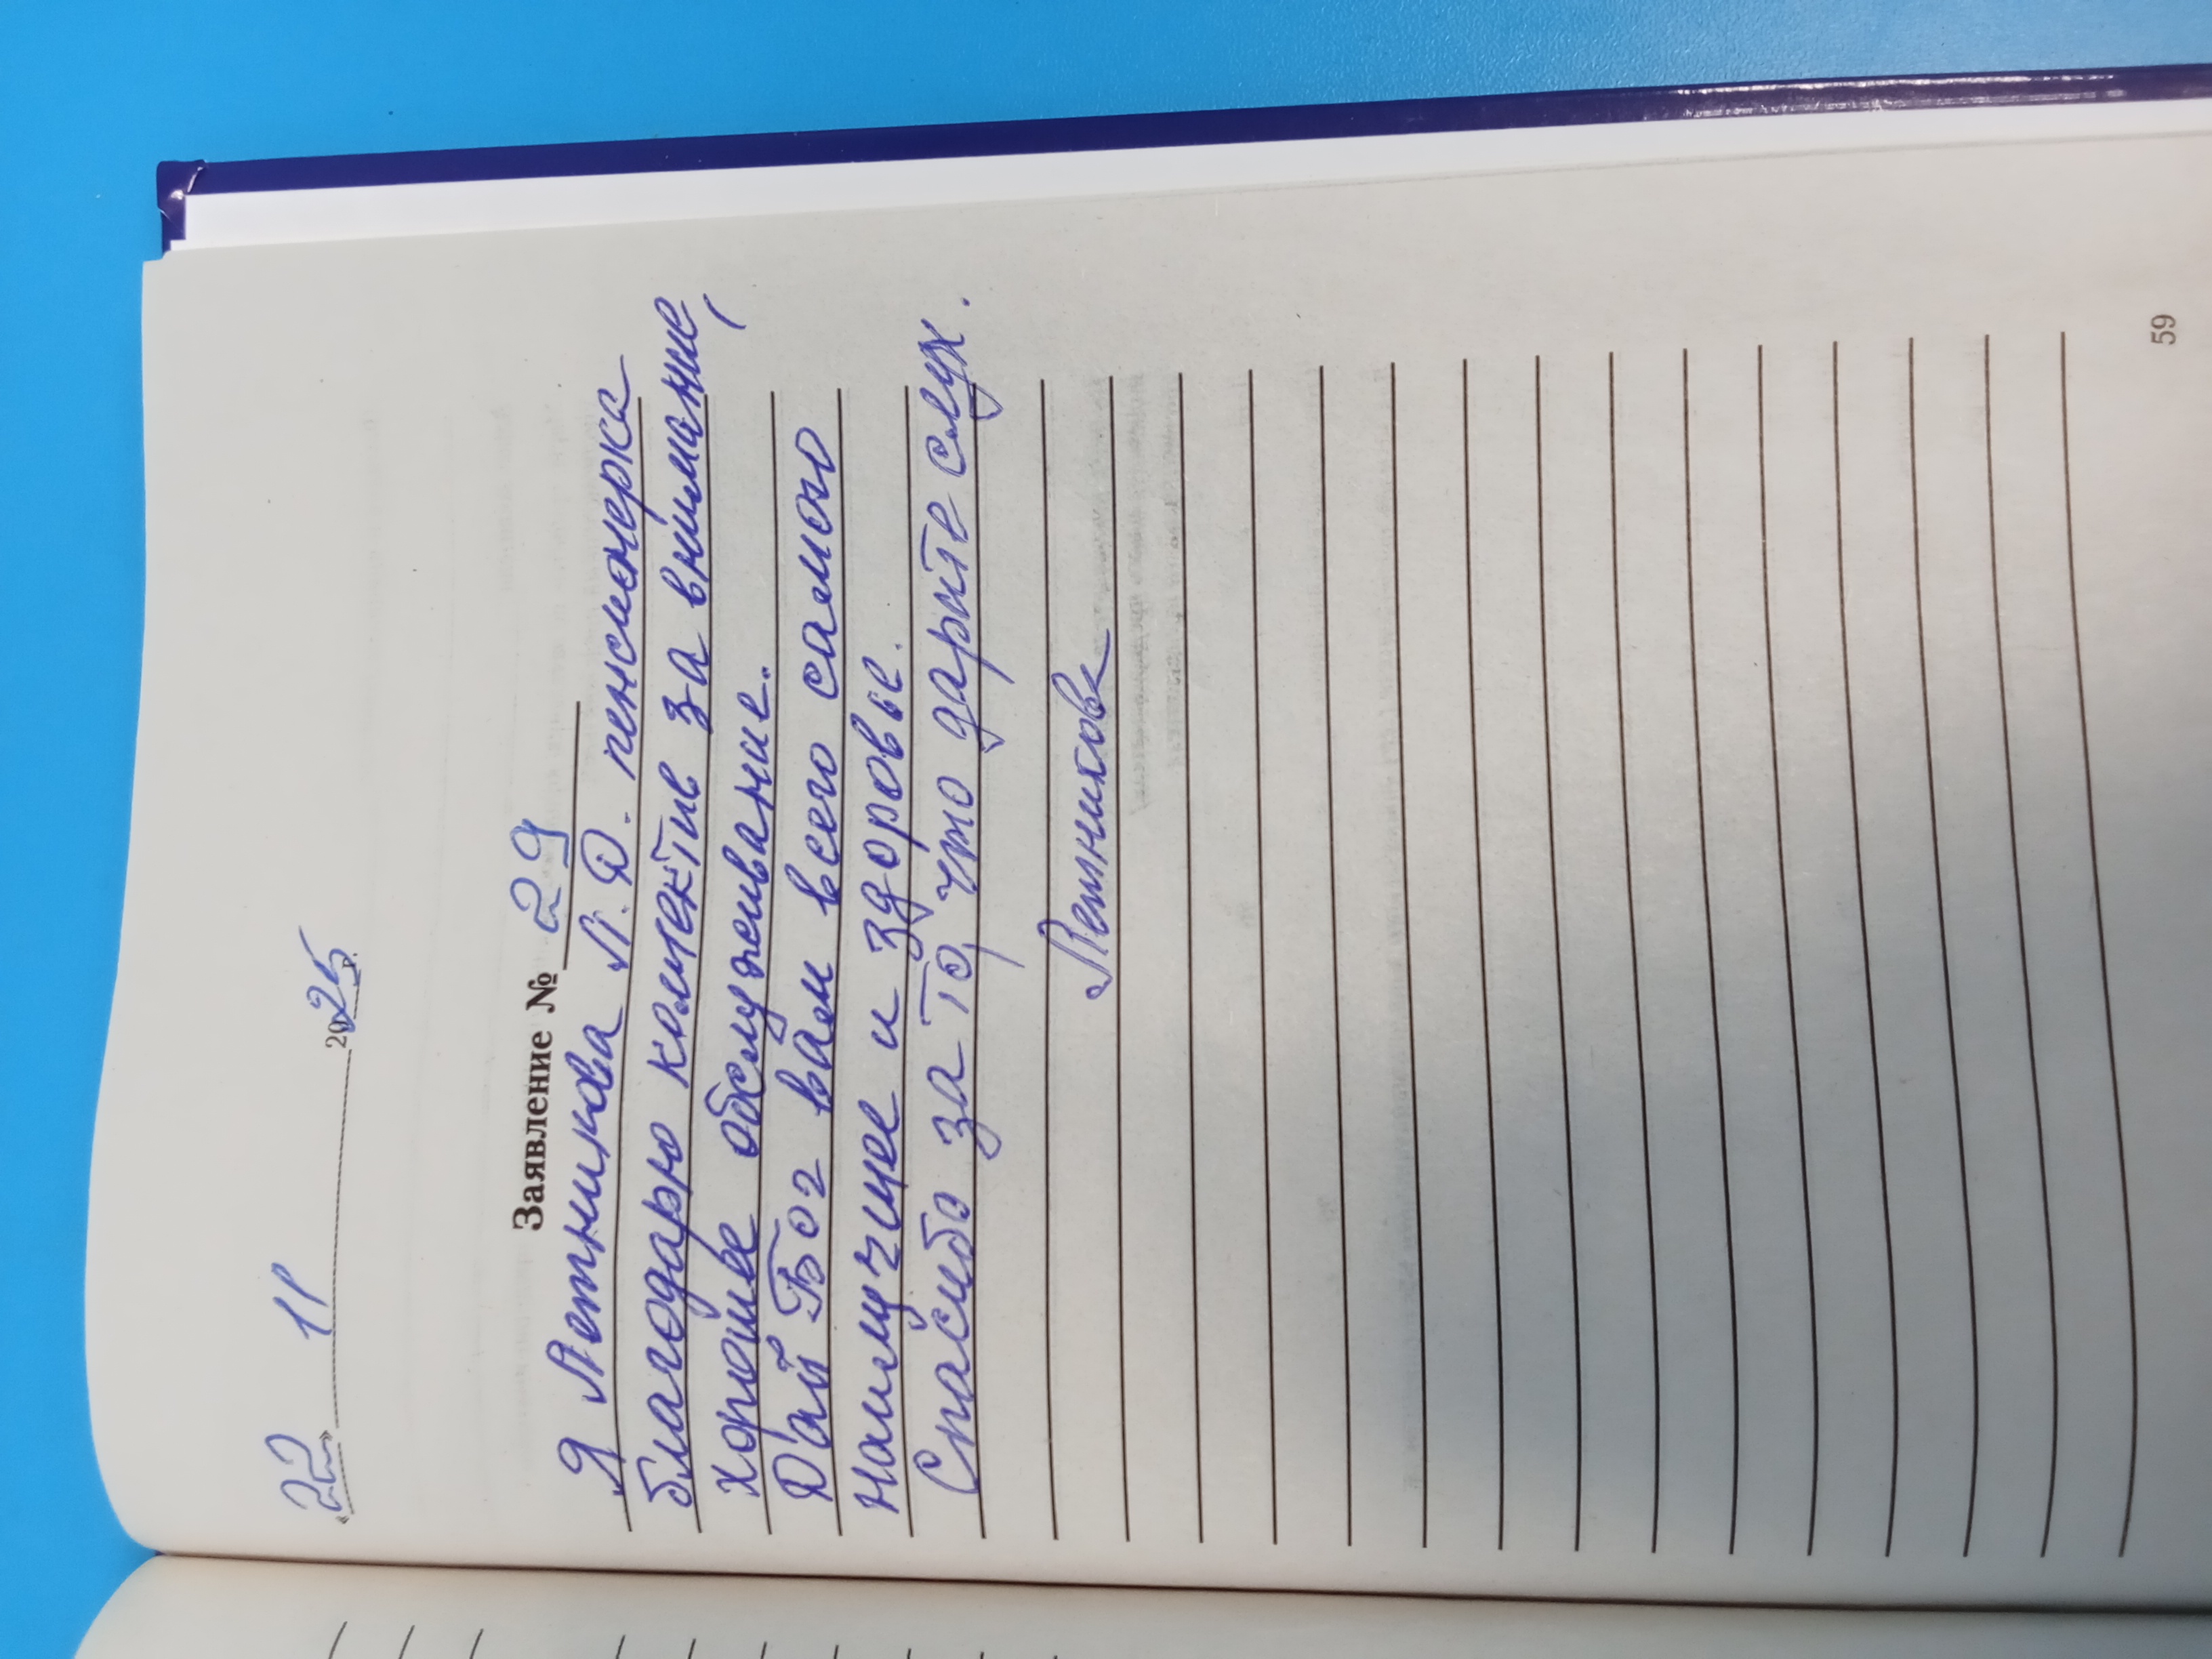 «22» 11 2025 р.
Заявление № 29
Я Летникова Л.Д. пенсионерка
благодарю колектив за внимание,
хорошее обслуживание.
Дай Бог вам всего самого
наилучшее и здоровье.
Спасибо за то, что дарите слух.
Летникова
59